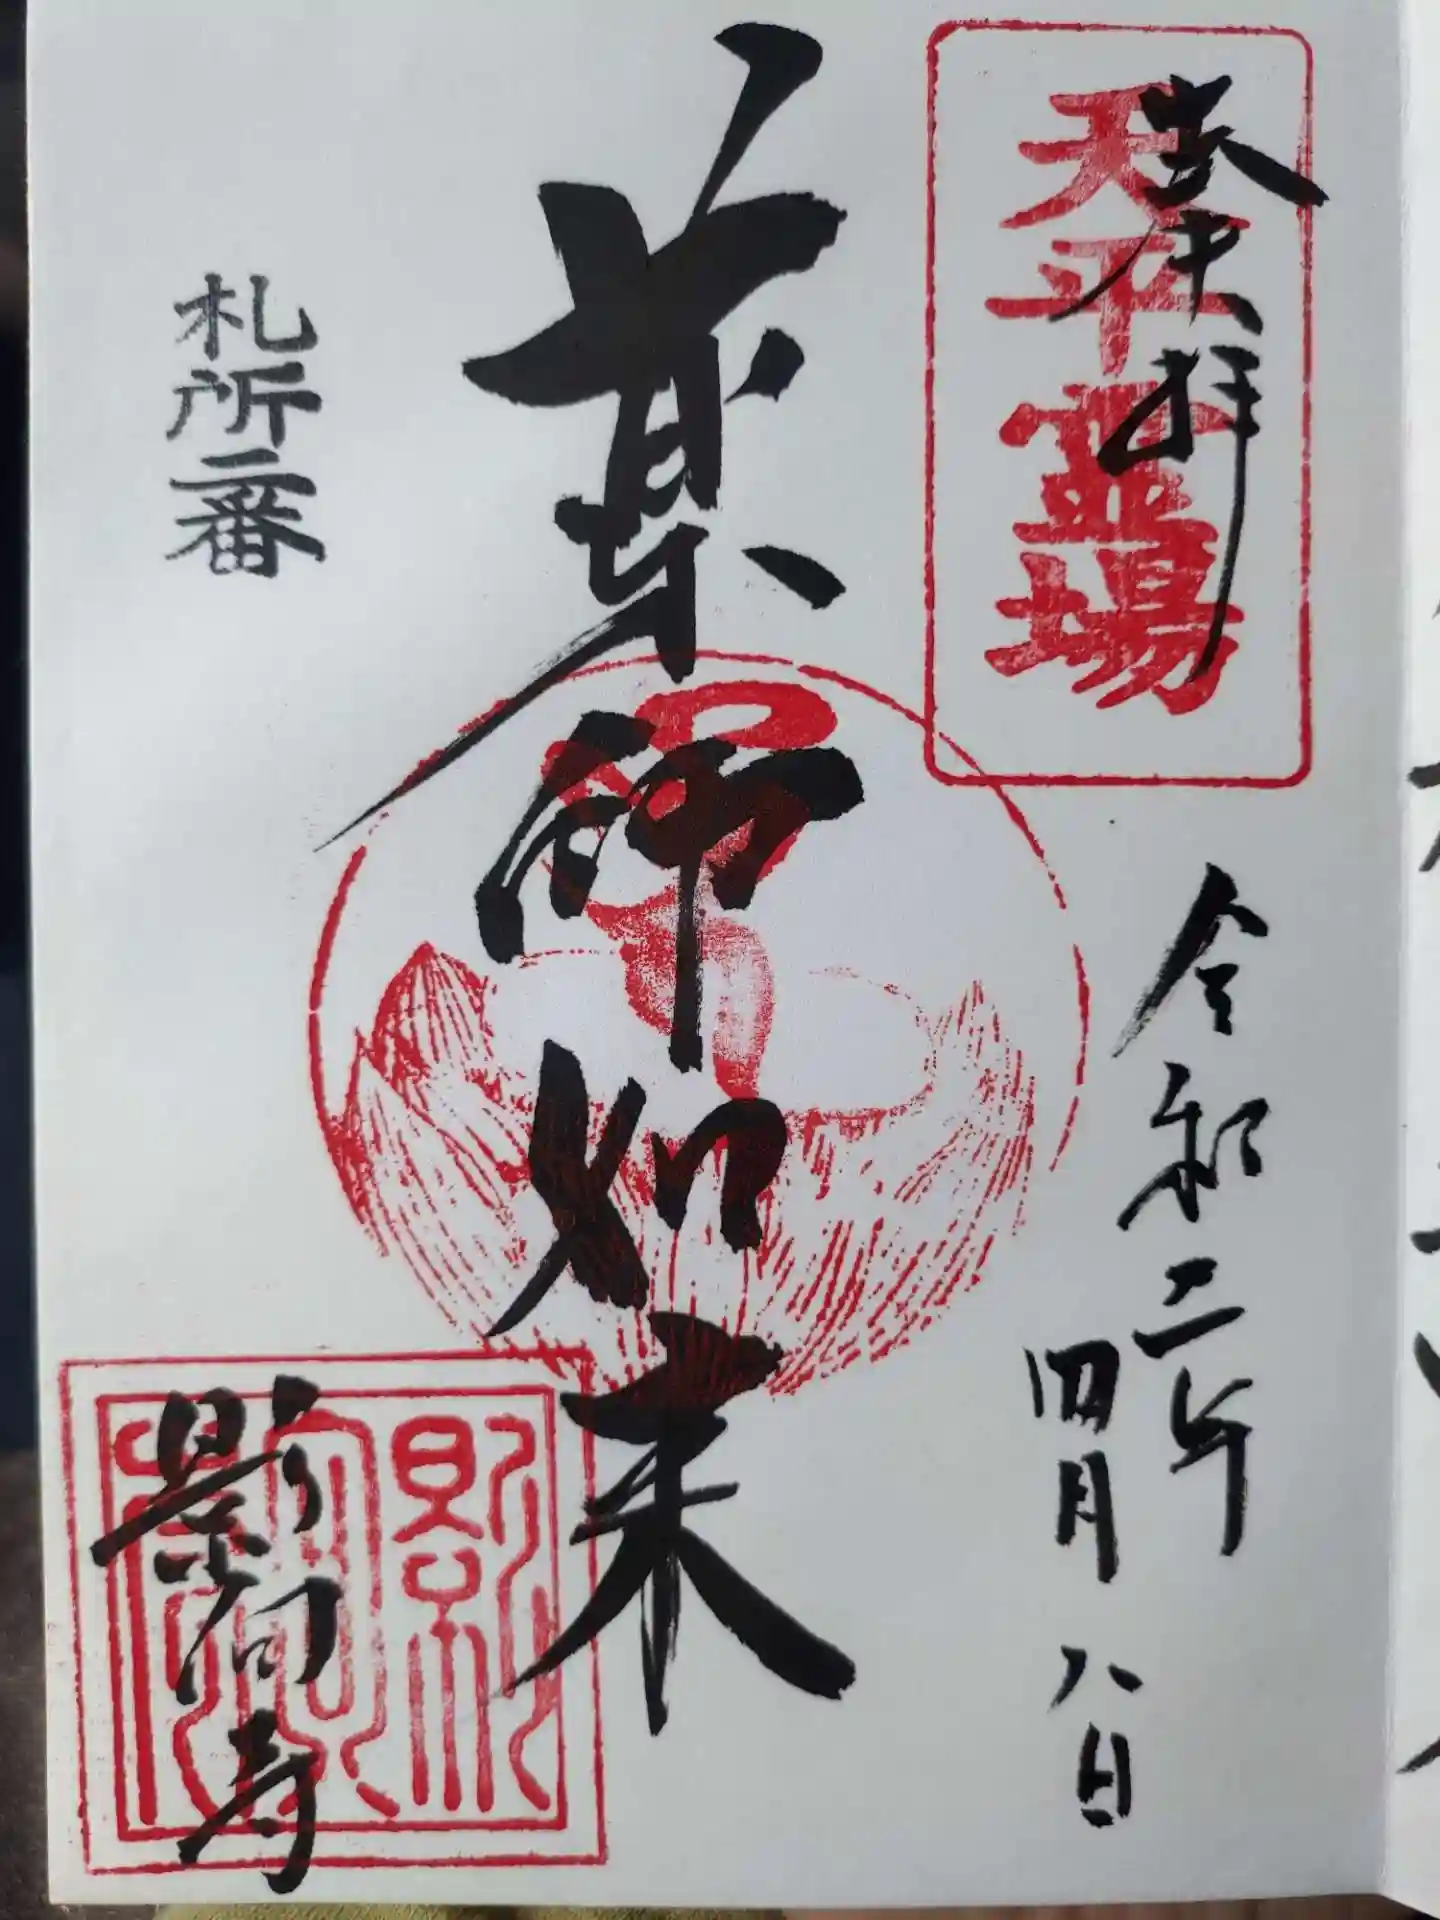 奉拝
天平霊場
令和二年
四月八日
薬師如来
札所二番
影向寺
影向寺